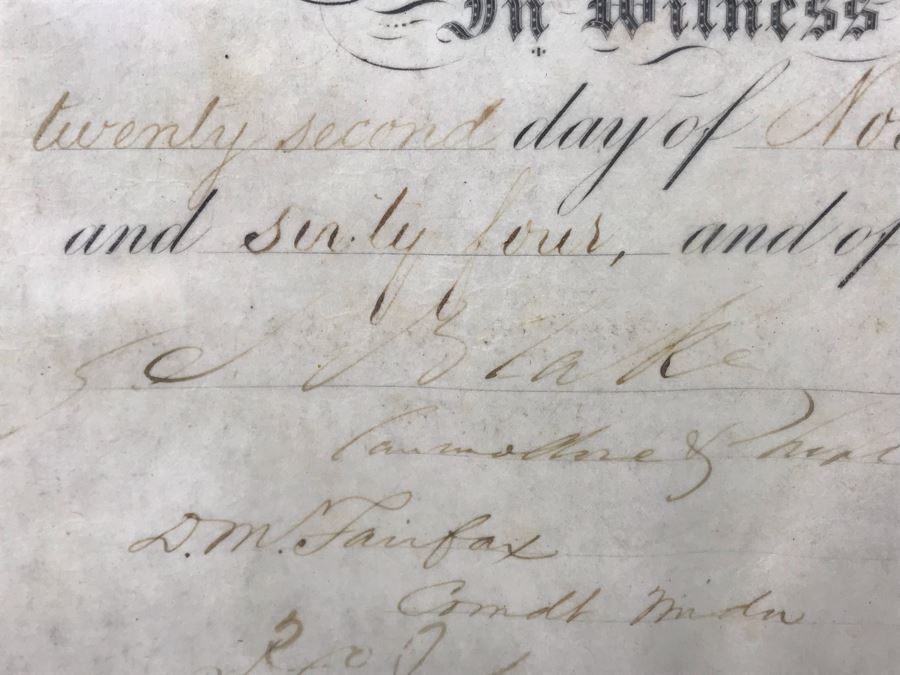 In Witness
twenty second day of Nov
and sixty four, and of
Blake
Commodore &
D. M. Fairfax
Comdt Midn